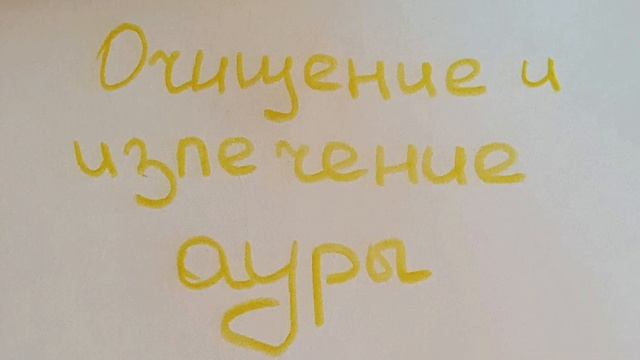 Очищение и
излечение
ауры